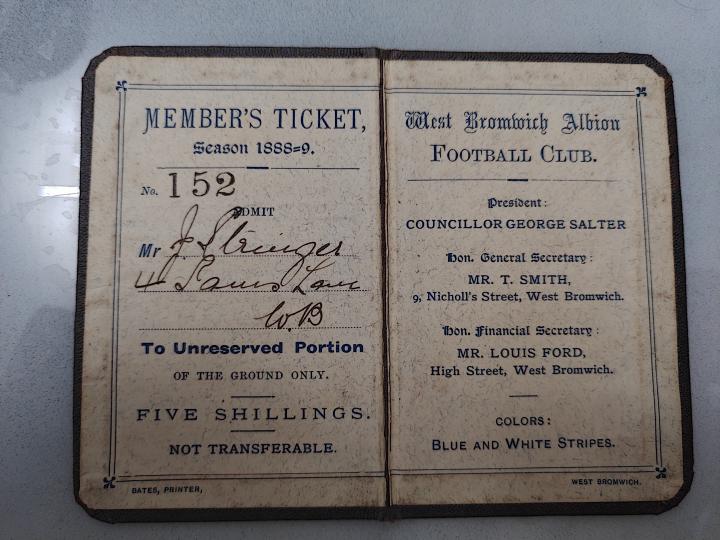 MEMBER'S TICKET,
Season 1888=9.
No. 152
ADMIT
Mr J Stringer
4 Lane
W.B
To Unreserved Portion
OF THE GROUND ONLY.
FIVE SHILLINGS.
NOT TRANSFERABLE.
BATES, PRINTER,
West Bromwich Albion
FOOTBALL CLUB.
President:
COUNCILLOR GEORGE SALTER
Hon. General Secretary:
MR. T. SMITH,
9, Nicholl's Street, West Bromwich.
Hon. Financial Secretary:
MR. LOUIS FORD,
High Street, West Bromwich.
COLORS:
BLUE AND WHITE STRIPES.
WEST BROMWICH.